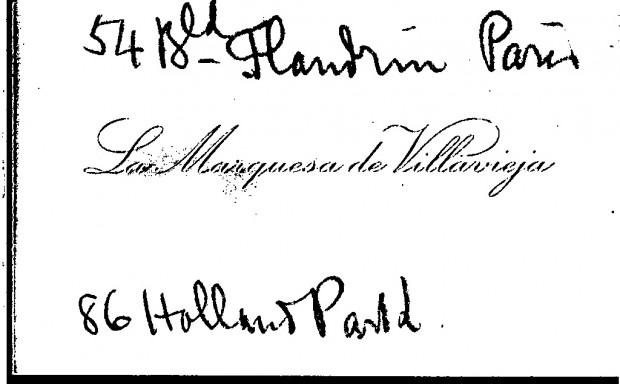 54 Bld Flandrin Paris
La Marquesa de Villavieja
86 Holland Park